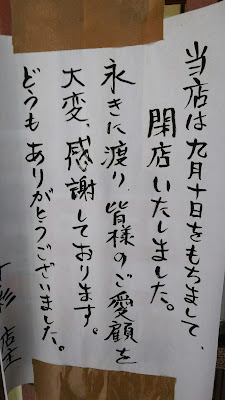 当店は九月十日をもちまして、
閉店いたしました。
永きに渡り、皆様のご愛顧を
大変、感謝しております。
どうもありがとうございました。